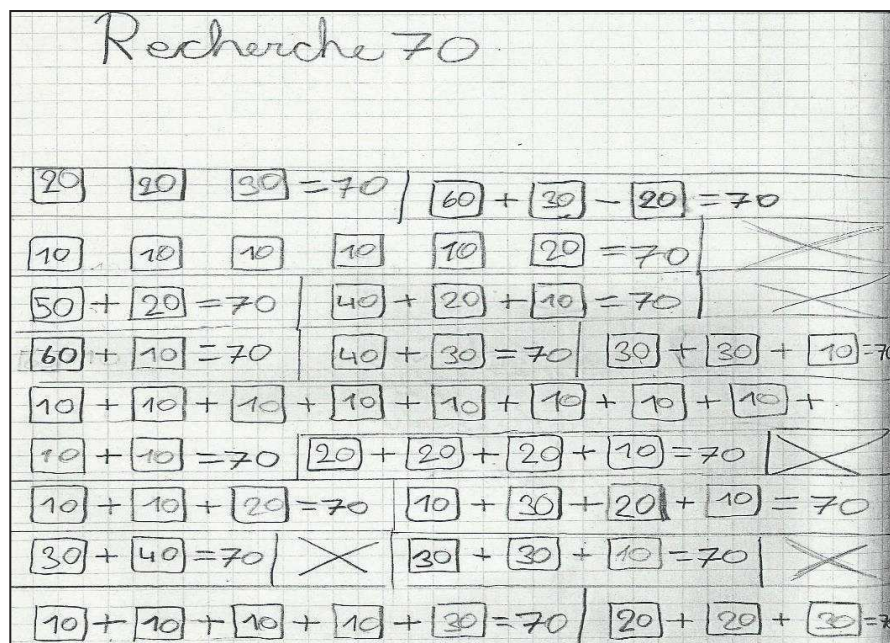 Recherche 70
20 20 30 = 70 60 + 30 - 20 = 70
10 10 10 10 10 20 = 70
50 + 20 = 70 40 + 20 + 10 = 70
60 + 10 = 70 40 + 30 = 70 30 + 30 + 10 = 70
10 + 10 + 10 + 10 + 10 + 10 + 10 + 10 +
10 + 10 = 70 20 + 20 + 20 + 10 = 70
10 + 10 + 20 = 70 10 + 30 + 20 + 10 = 70
30 + 40 = 70 30 + 30 + 10 = 70
10 + 10 + 10 + 10 + 30 = 70 20 + 20 + 30 = 7